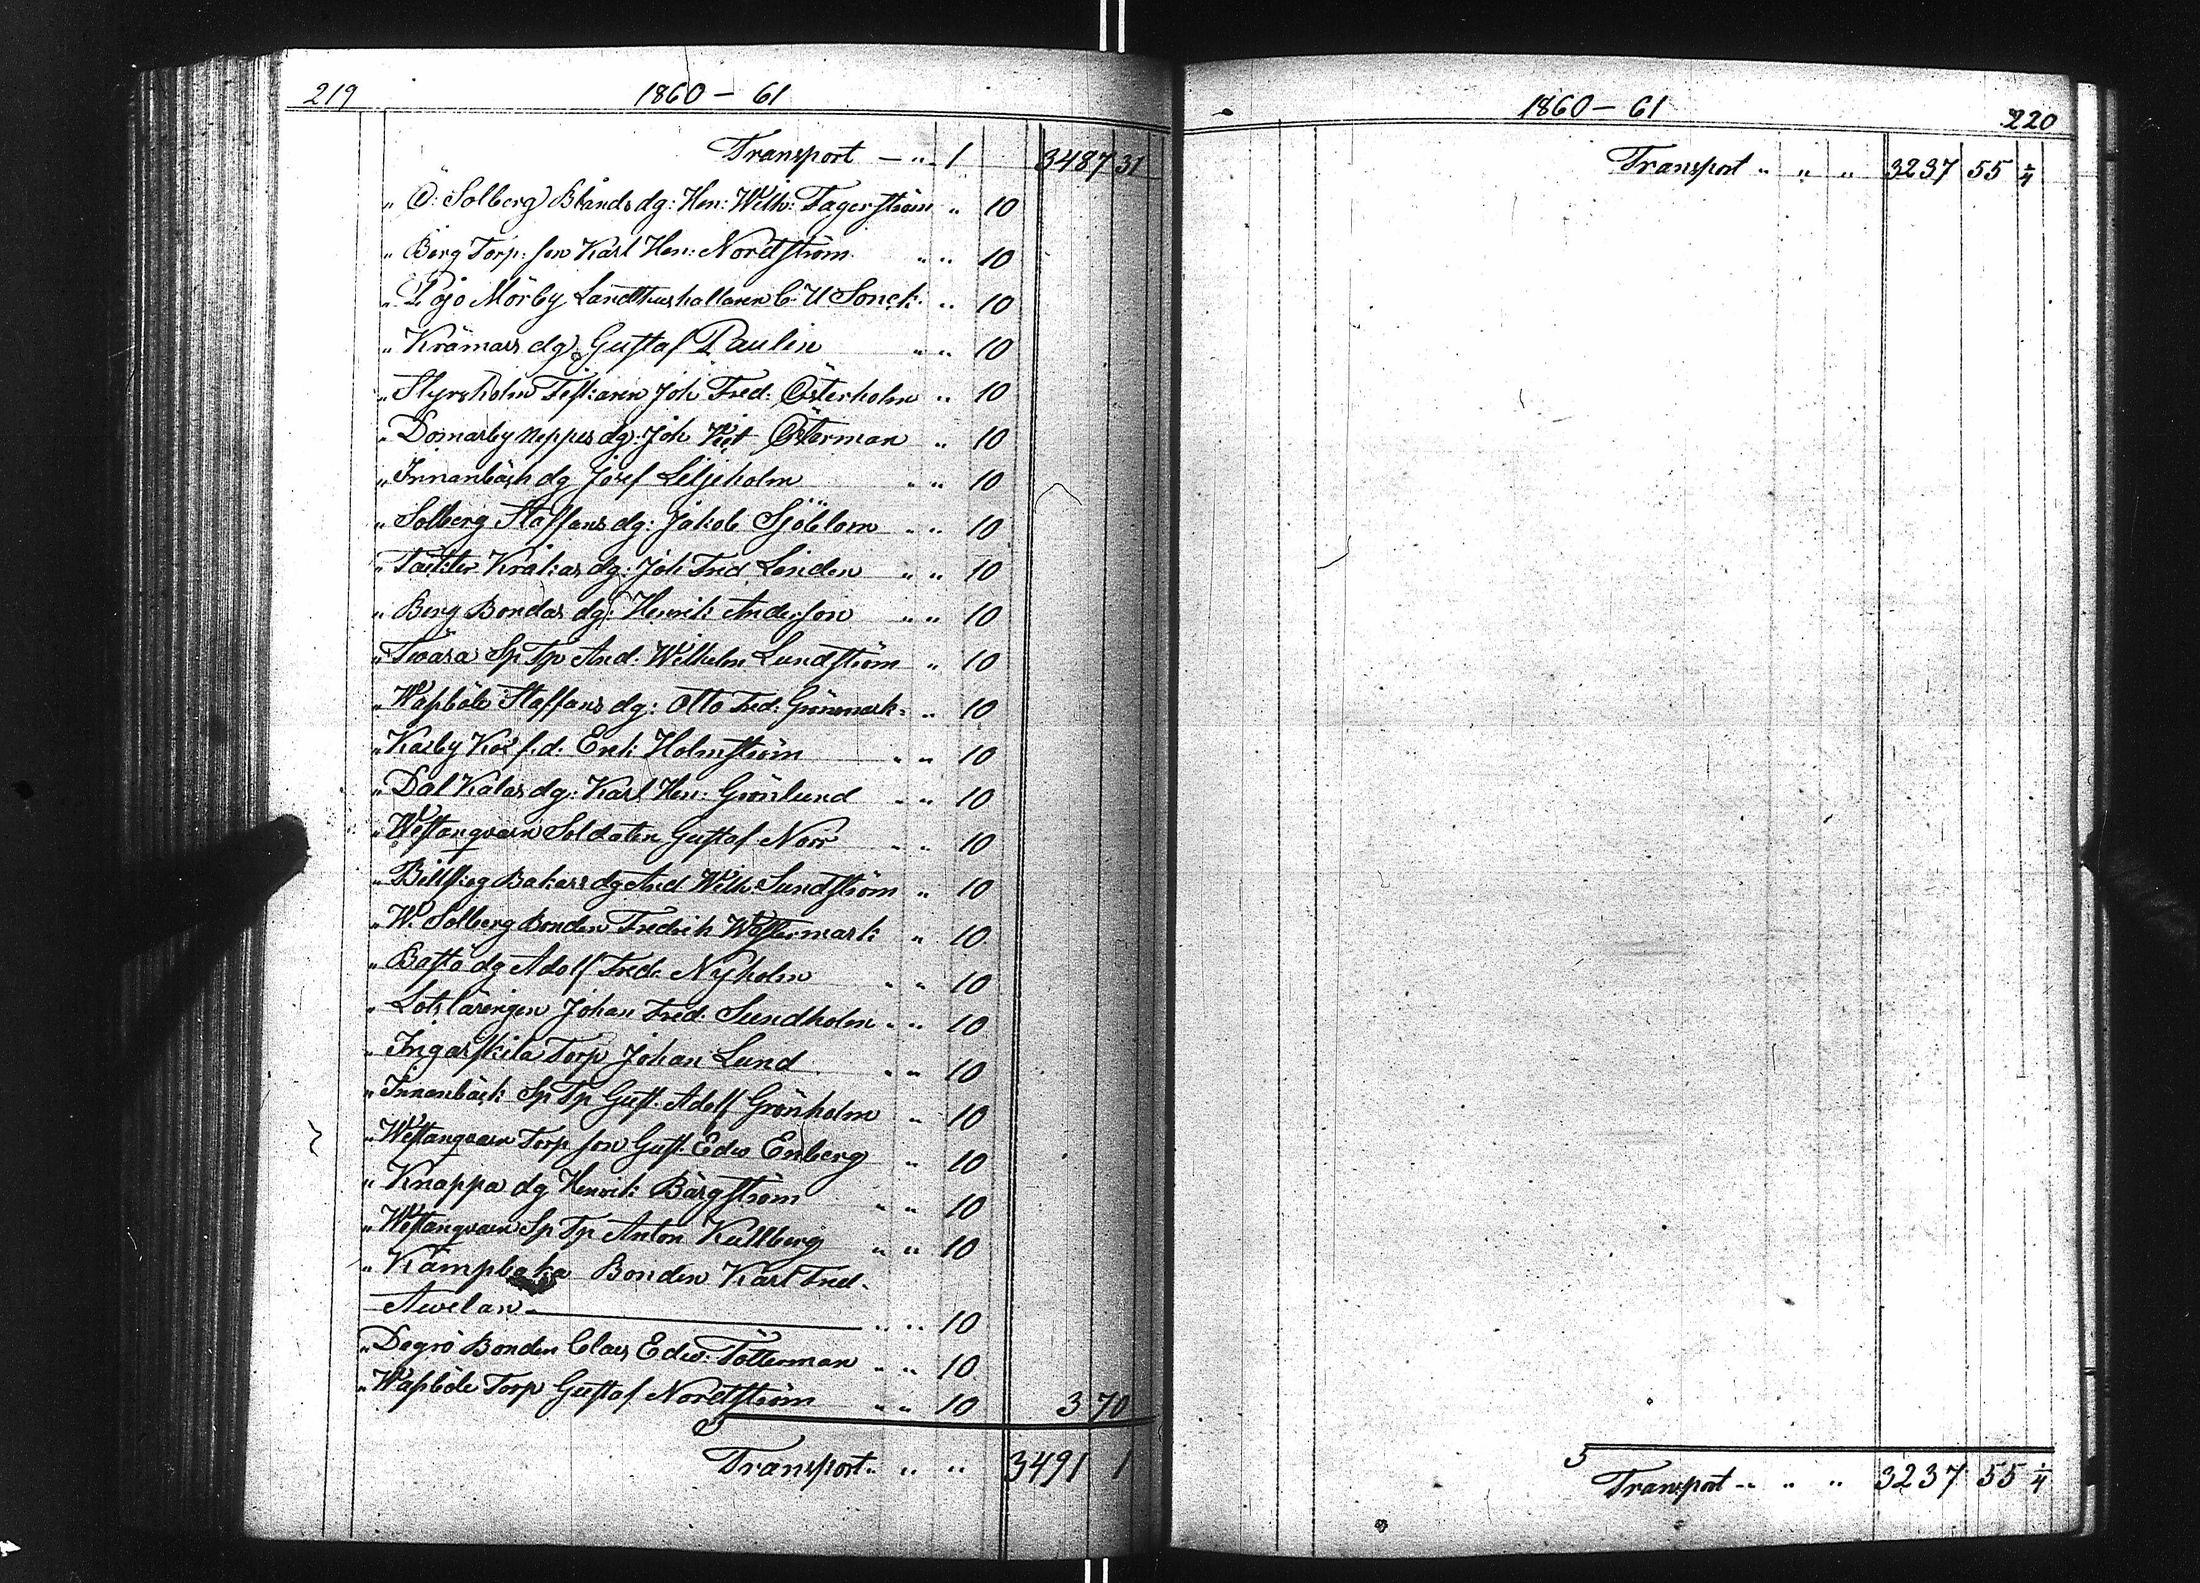 219 1860 – 61
Transport — „ 1 3487 31
„ Ö: Solberg Blånds dg: Hen: Wilh: Fagerström „ 10
„ Berg Torp: son Karl Hen: Nordström „ „ 10
„ Pojo Mörby Landthushållaren C. U Sonck „ 10
„ Krämars dg: Gustaf Paulin „ „ 10
„ Styrsholm Fiskaren Joh Fred: Österholm „ 10
„ Domarby Neppes dg: Joh Vict Österman „ 10
„ Innanbäck dg Josef Liljeholm „ „ 10
„ Solberg Staffans dg: Jakob Sjöblom „ „ 10
„ Täckter Kråkas dg: Joh Fred Linden „ „ 10
„ Berg Bondas dg: Henrik Anderson „ „ 10
„ Twära Sp Tp And: Wilhelm Lundström „ 10
„ Wasböle Staffans dg: Otto Fred: Grönmark „ 10
„ Karby f.d. Erik Holmström „ „ 10
„ Dal Kalas dg: Karl Hen: Grönlund „ „ 10
„ Westanqvarn Soldaten Gustaf Norr „ „ 10
„ Billskog Bakars dg And Wilh: Sundström „ 10
„ W. Solberg Bonden Fredrik Westermark „ 10
„ Bastö dg Adolf Fred: Nyholm „ „ 10
„ Lotslärlingen Johan Fred: Sundholm „ „ 10
„ Ingarskila Torp Johan Lund „ „ 10
„ Innanbäck Sp Tp Gust. Adolf Grönholm „ 10
„ Westanqvarn Torp son Gust. Edw Enberg „ 10
„ Knappa dg Henrik Bärgström „ „ 10
„ Westanqvarn Sp Tp Anton Kullberg „ „ 10
„ Kämpbaka Bonden Karl Fred.
Awelan — „ „ 10
„ Degrö Bonden Claes Edw: Tötterman „ „ 10
„ Wasböle Torp Gustaf Nordström „ „ 10 3 70
Transport „ „ „ 3491 1
1860 – 61 220
Transport „ „ „ 3237 55 1/4
5
Transport „ „ „ 3237 55 1/4